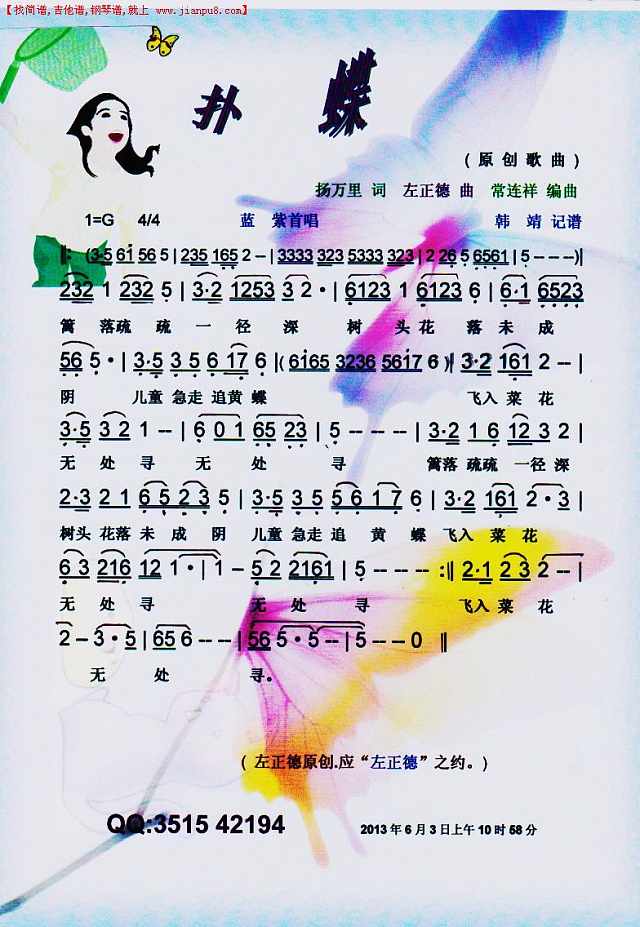 【找简谱,吉他谱,钢琴谱,就上 www.jianpu8.com】
扑 蝶
(原创歌曲)
扬万里 词 左正德 曲 常连祥 编曲
1=G 4/4 蓝 紫首唱 韩 靖 记谱
‖: (3·5 61 56 5 | 235 165 2 -- | 3333 323 5333 323 | 2 26 5 6561 | 5 - - - -)|
232 1 232 5 | 3·2 1253 3 2 · | 6123 1 6123 6 | 6·1 6523
篱 落疏 疏 一 径 深 树 头 花 落 未 成
56 5 · | 3·5 3 5 6 17 6 |( 6165 3236 5617 6 )| 3·2 161 2 -- |
阴 儿童 急走 追黄 蝶 飞入 菜 花
3·5 3 2 1 -- | 6 0 1 65 23 | 5 - - - - | 3·2 1 6 12 3 2 |
无 处 寻 无 处 寻 篱落 疏疏 一径 深
2·3 2 1 6 5 2 3 5 | 3·5 3 5 5 6 1 7 6 | 3·2 161 2 · 3 |
树头 花落 未 成 阴 儿童 急走 追 黄 蝶 飞入 菜 花
6 3 216 12 1 · | 1 - 5 2 2161 | 5 - - - - :‖ 2·1 2 3 2 -- |
无 处 寻 无 处 寻 飞入 菜 花
2 - 3 · 5 | 65 6 - - - | 56 5 · 5 - - | 5 - - 0 ‖
无 处 寻。
( 左正德原创.应“左正德”之约。)
QQ:3515 42194 2013 年 6 月 3 日上午 10 时 58 分